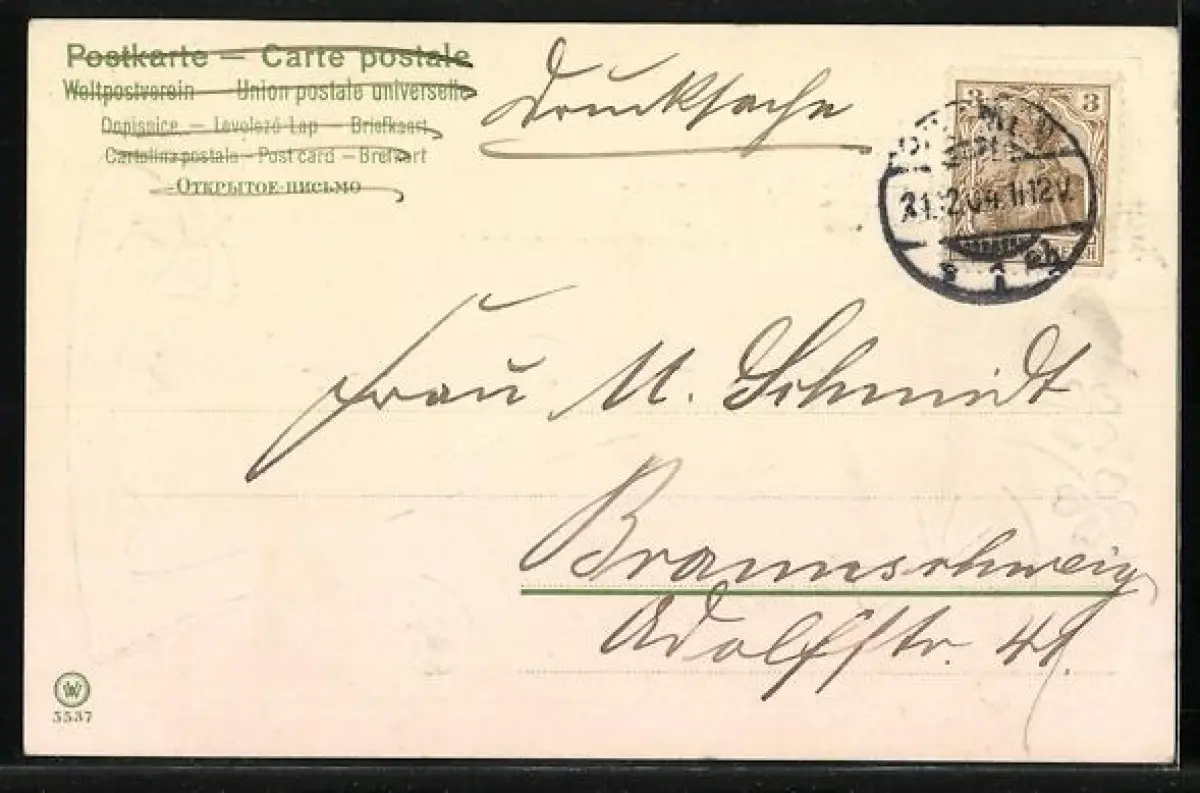 Postkarte — Carte postale
Weltpostverein — Union postale universelle
Dopisnice — Levelező-Lap — Briefkaart
Cartolina postale — Post card — Brefkort
-Открытое письмо
Drucksache
3 3
31.12.04. 11-12V.
Frau M. Schmidt
Braunschweig
Adolfstr. 41.
W
3537